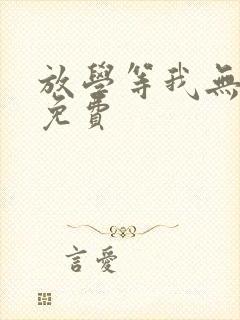 放學等我無
免費
言愛